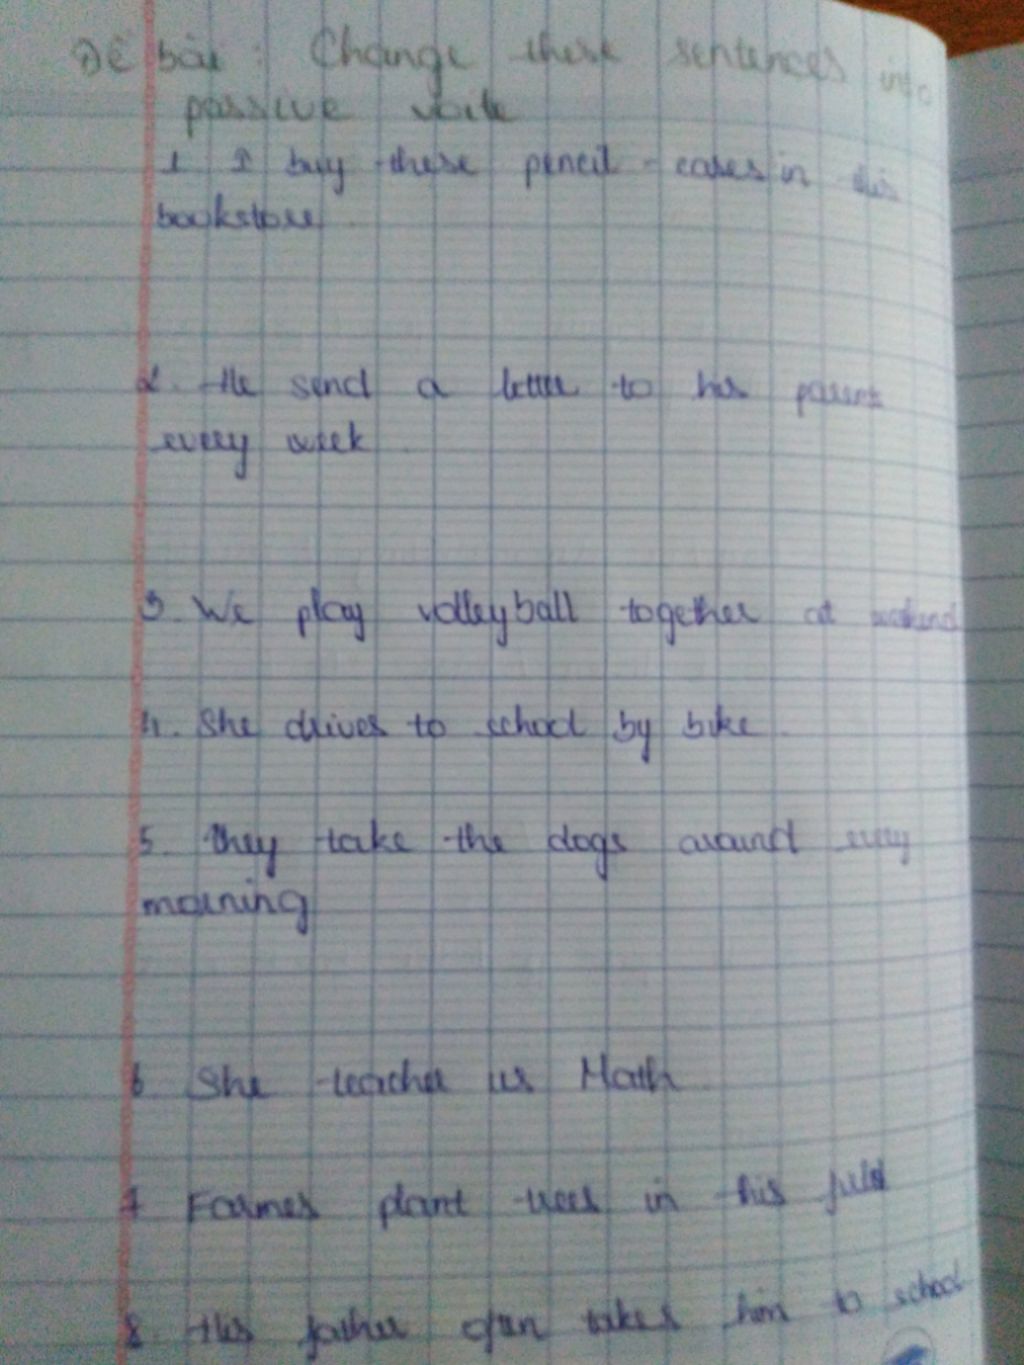 Đề bài : Change these sentences into
passive voice
1 I buy these pencil - cases in this
bookstore.
2. He send a letter to his parents
every week.
3. We play volleyball together at weekend
4. She drives to school by bike.
5. They take the dogs around every
morning
6 She teaches us Math
7 Farmes plant trees in this field
8. His father often takes him to school